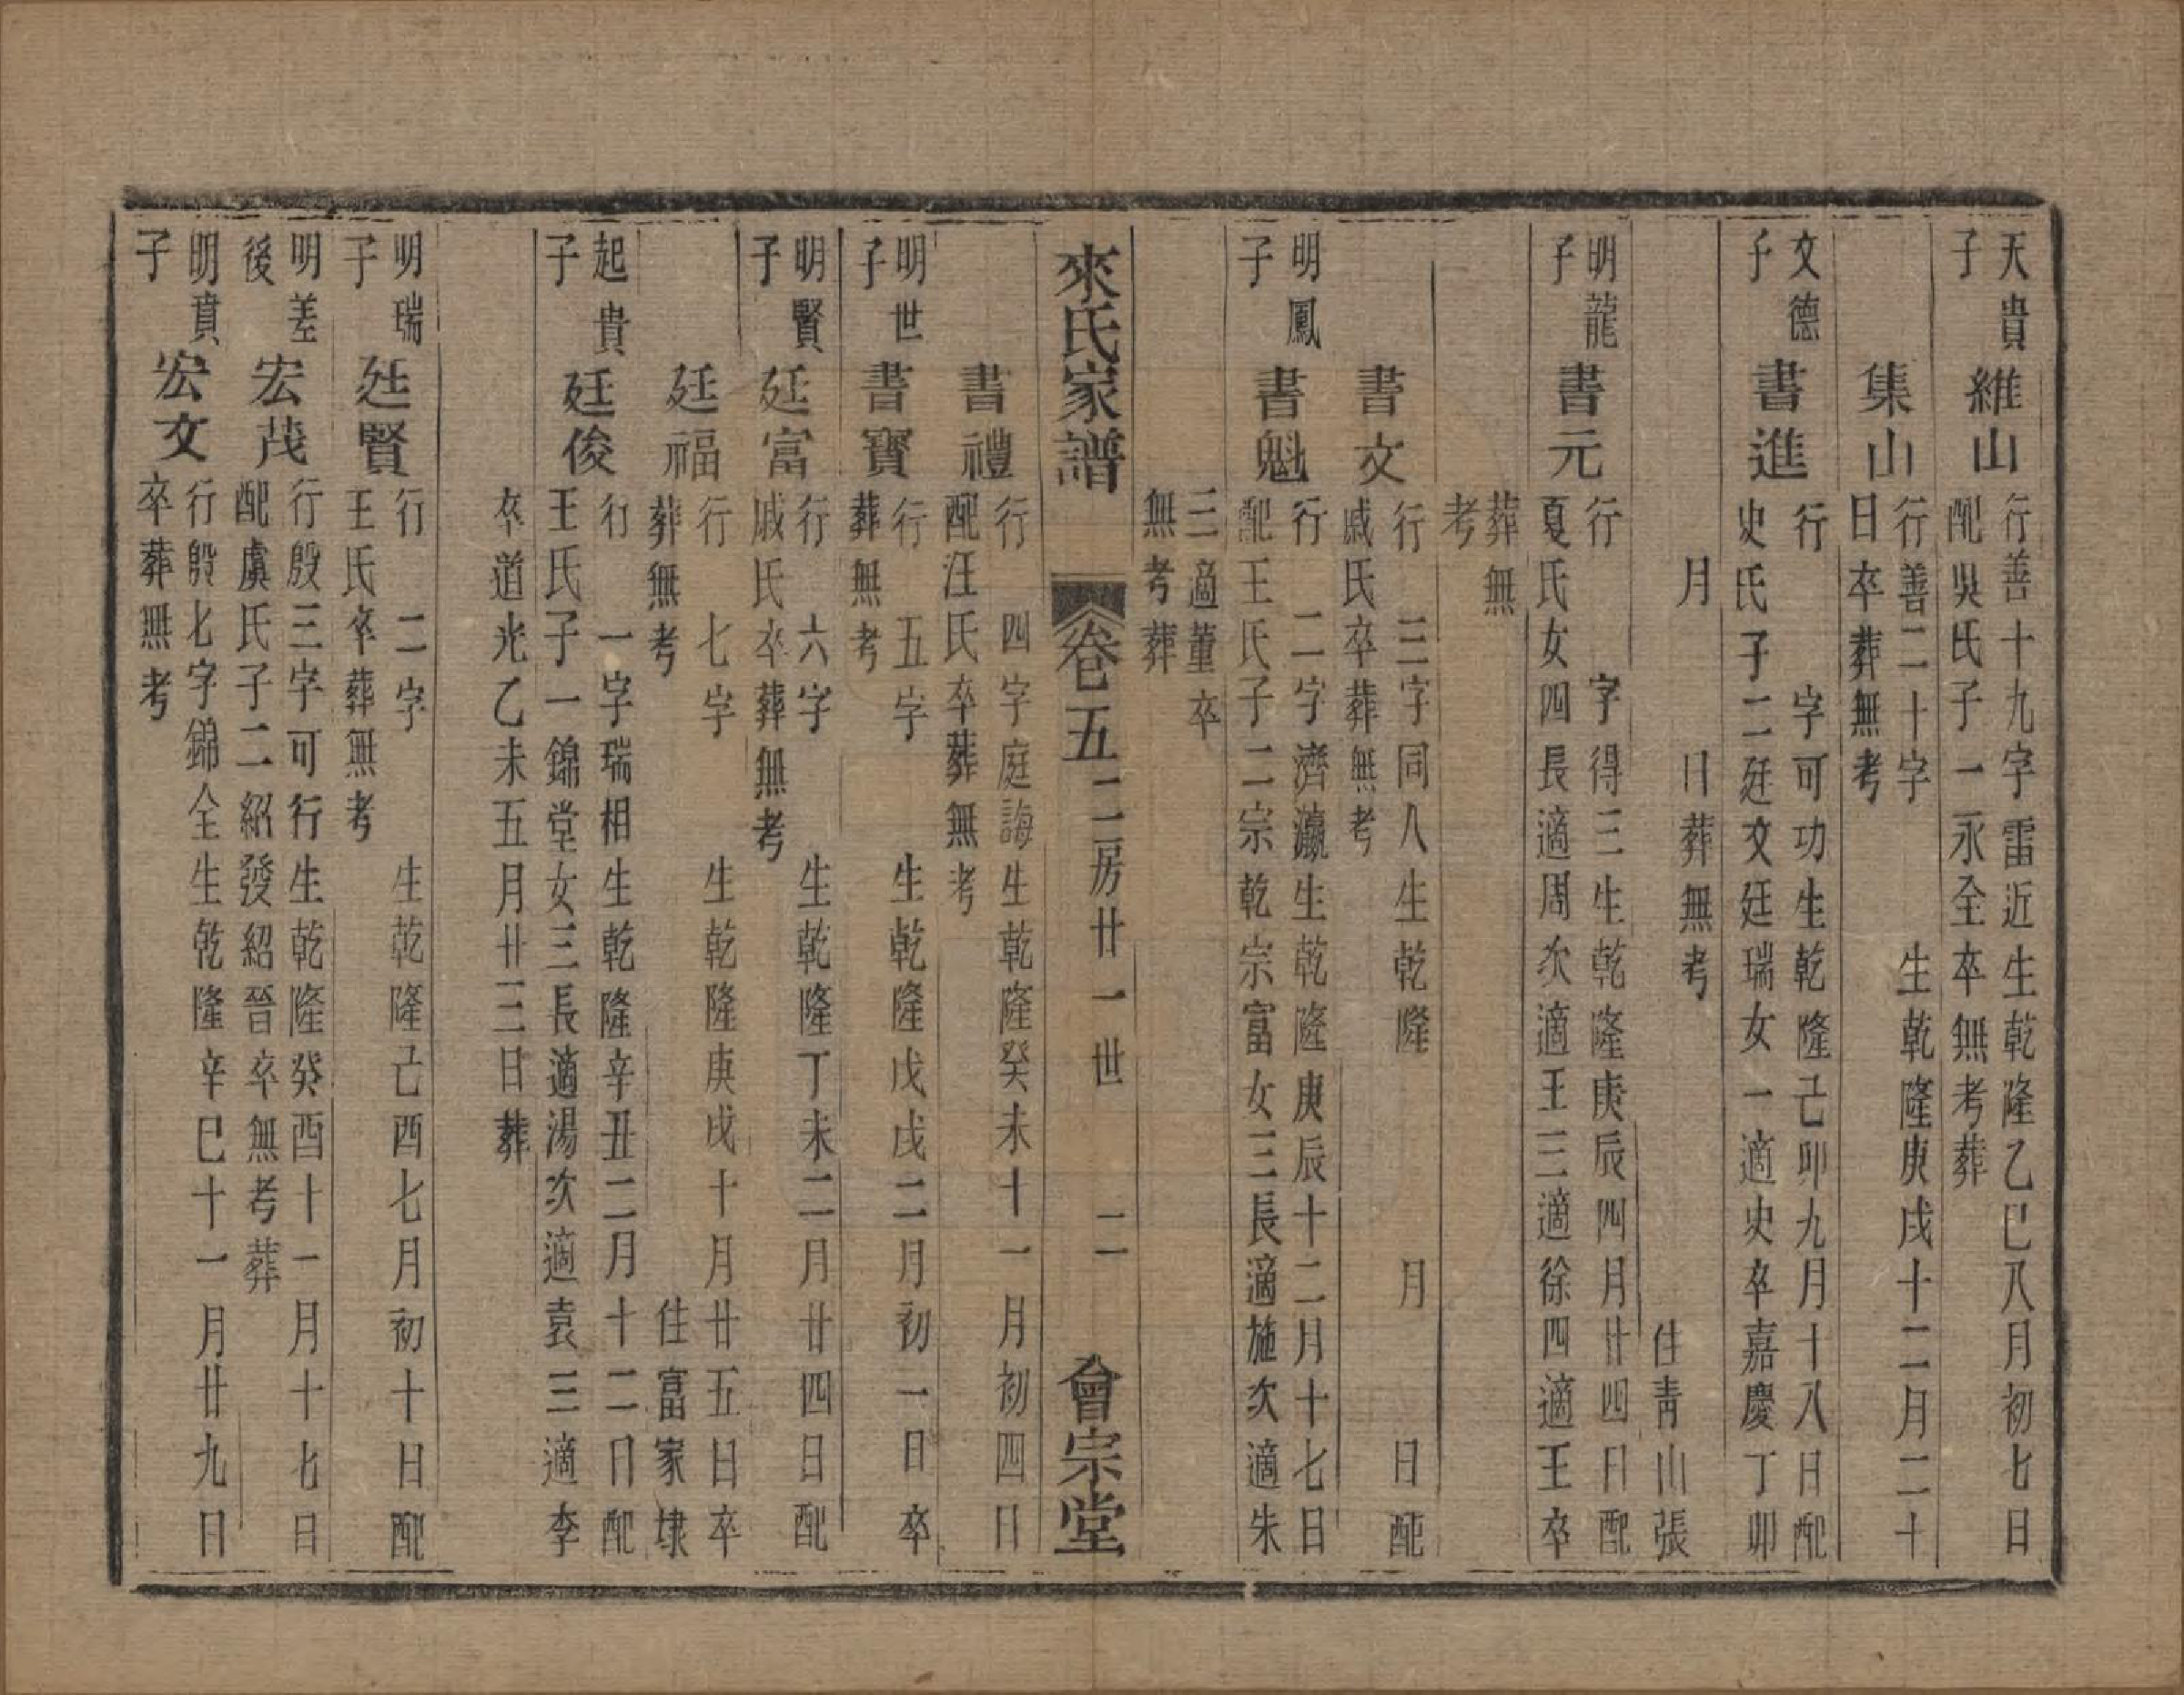 天貴
子
維山
行善十九字雷近生乾隆乙巳八月初七日
配吳氏子一永全卒無考葬
集山
行善二十字 生乾隆庚戌十二月二十
日卒葬無考
文德
子
書進
行 字可功生乾隆己卯九月十八日配
史氏子二廷文廷瑞女一適史卒嘉慶丁卯
月 日葬無考 住青山張
明龍
子
書元
行 字得三生乾隆庚辰四月廿四日配
夏氏女四長適周次適王三適徐四適王卒
葬無
考
書文
行 三字同人生乾隆 月 日配
戚氏卒葬無考
明鳳
子
書魁
行 二字濟瀛生乾隆庚辰十二月十七日
配王氏子二宗乾宗富女三長適施次適朱
三適董卒
無考葬
來氏家譜 卷五 二房廿一世 二 會宗堂
書禮
行 四字庭誨生乾隆癸未十一月初四日
配汪氏卒葬無考
明世
子
書寶
行 五字 生乾隆戊戌二月初一日卒
葬無考
明賢
子
廷富
行 六字 生乾隆丁未二月廿四日配
戚氏卒葬無考
廷福
行 七字 生乾隆庚戌十月廿五日卒
葬無考 住富家埭
起貴
子
廷俊
行 一字瑞相生乾隆辛丑二月十二日配
王氏子一錦堂女三長適湯次適袁三適李
卒道光乙未五月廿三日葬
明瑞
子
廷賢
行 二字 生乾隆己酉七月初十日配
王氏卒葬無考
明差
後
宏茂
行殷三字可行生乾隆癸酉十一月十七日
配虞氏子二紹發紹晉卒無考葬
明賁
子
宏文
行殷七字錦全生乾隆辛巳十一月廿九日
卒葬無考